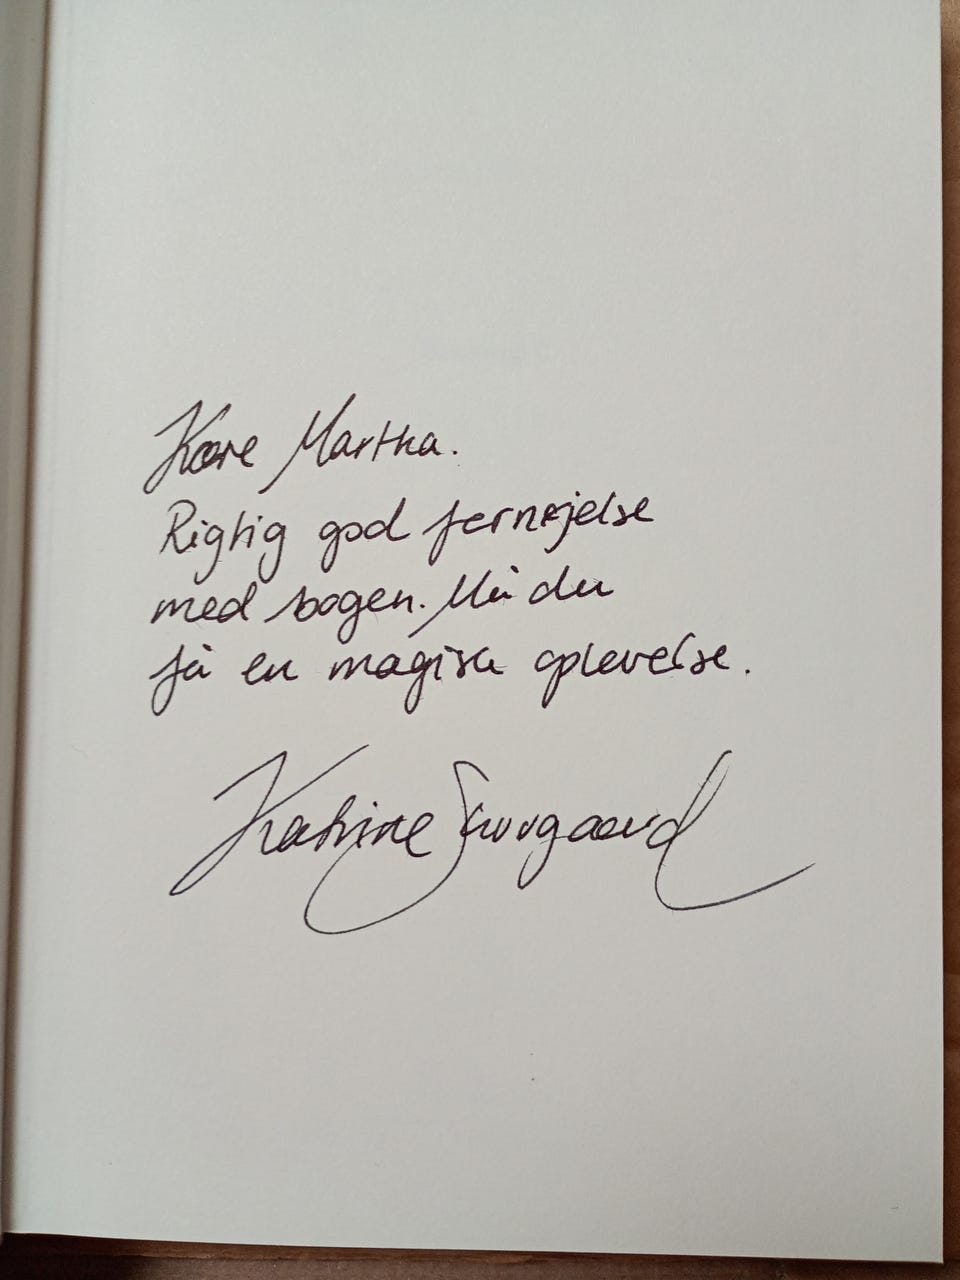 Kære Martha.
Rigtig god fornøjelse
med bogen. Må du
få en magisk oplevelse.
Katrine Skovgaard